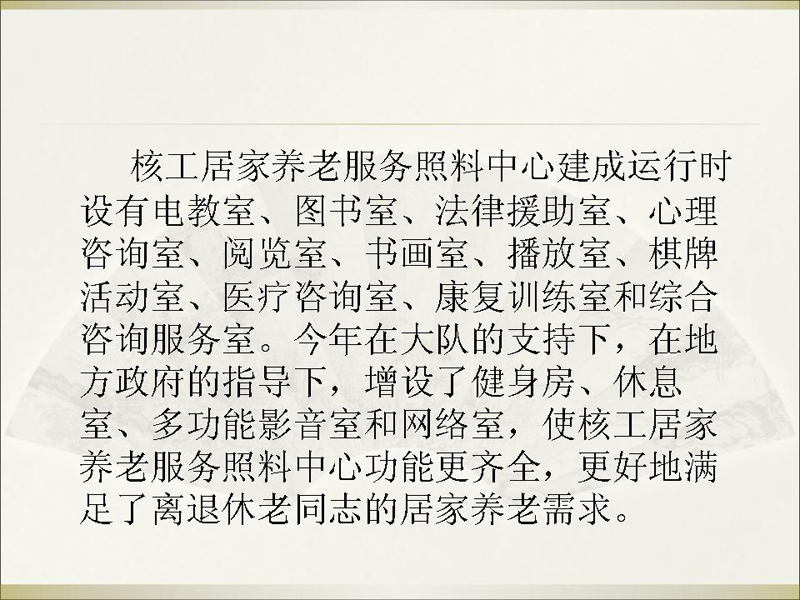 核工居家养老服务照料中心建成运行时
设有电教室、图书室、法律援助室、心理
咨询室、阅览室、书画室、播放室、棋牌
活动室、医疗咨询室、康复训练室和综合
咨询服务室。今年在大队的支持下，在地
方政府的指导下，增设了健身房、休息
室、多功能影音室和网络室，使核工居家
养老服务照料中心功能更齐全，更好地满
足了离退休老同志的居家养老需求。